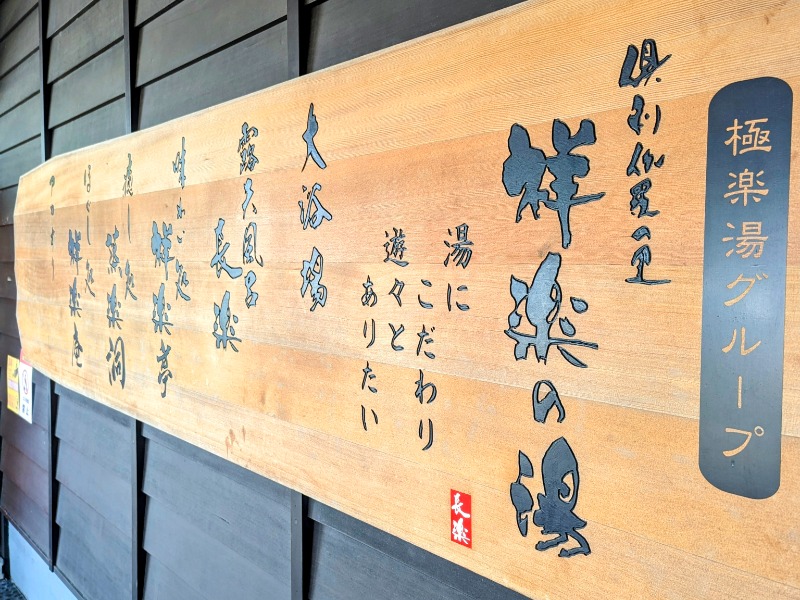 極楽湯グループ
倶利伽羅の里
祥楽の湯
湯に
こだわり
遊々と
ありたい
長楽
大浴場
露天風呂
長楽
味わい処
祥楽亭
癒し処
蒸楽洞
ほぐし処
祥楽庵